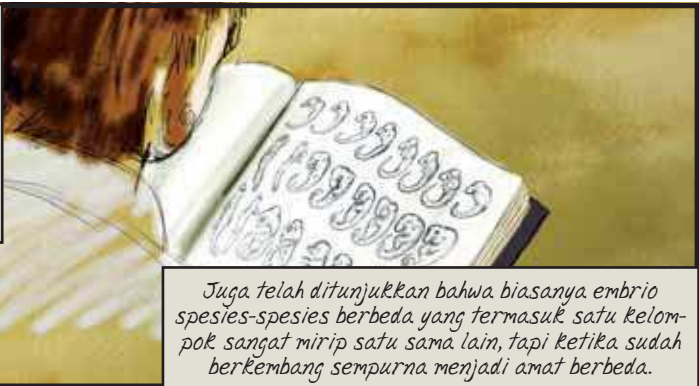 Juga telah ditunjukkan bahwa biasanya embrio
spesies-spesies berbeda yang termasuk satu kelom-
pok sangat mirip satu sama lain, tapi ketika sudah
berkembang sempurna menjadi amat berbeda.